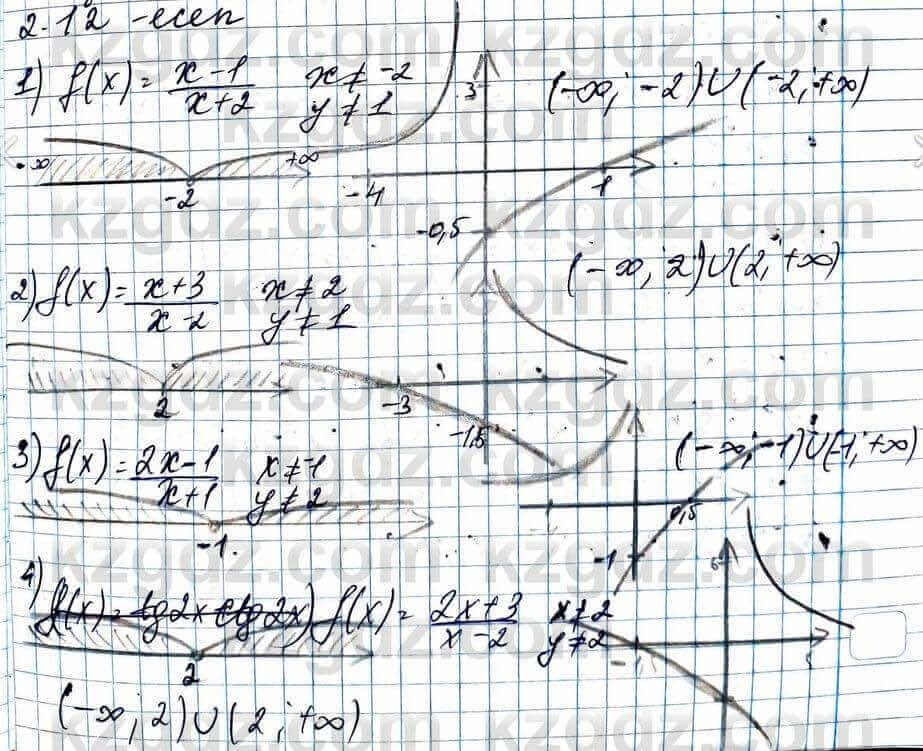 2.12 -есеп
1) f(x) = x-1/x+2 x ≠ -2 y ≠ 1
(-∞; -2)∪(-2; +∞)
3
-∞ +∞
-2
-4 1
-0,5
2) f(x) = x+3/x-2 x ≠ 2 y ≠ 1
(-∞; 2)∪(2; +∞)
2
-3
-1,5
3) f(x) = 2x-1/x+1 x ≠ -1 y ≠ 2
(-∞; -1)∪(-1; +∞)
-1
0,5
-1
4) f(x) = 2x+3/x-2 x ≠ 2 y ≠ 2
2
(-∞; 2)∪(2; +∞)
kzgdz.com